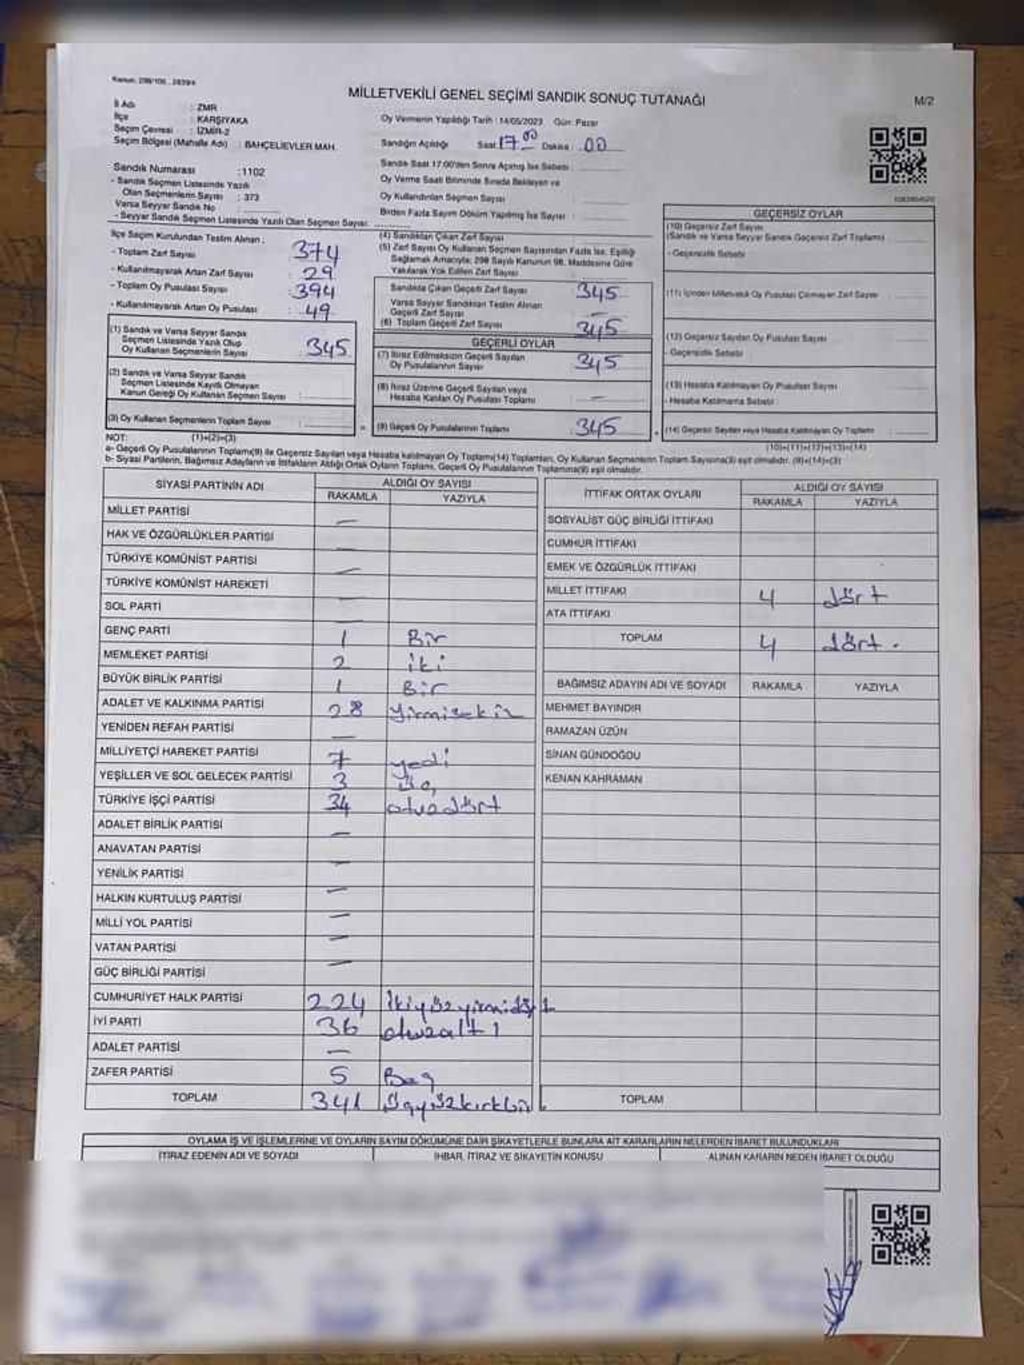 Kanun: 298/105 . 2839/4
MİLLETVEKİLİ GENEL SEÇİMİ SANDIK SONUÇ TUTANAĞI
M/2
İl Adı : ZMR
İlçe : KARŞIYAKA
Seçim Çevresi : İZMİR-2
Seçim Bölgesi (Mahalle Adı) : BAHÇELİEVLER MAH.
Oy Vermenin Yapıldığı Tarih : 14/05/2023 Gün: Pazar
Sandığın Açıldığı Saat 17.00 Dakika : 00
Sandık Saat 17:00'den Sonra Açılmış İse Sebebi :
Oy Verme Saati Bitiminde Sırada Bekleyen ve
Oy Kullandırılan Seçmen Sayısı
Birden Fazla Sayım Döküm Yapılmış İse Sayısı :
Sandık Numarası :1102
- Sandık Seçmen Listesinde Yazılı
Olan Seçmenlerin Sayısı : 373
Varsa Seyyar Sandık No
- Seyyar Sandık Seçmen Listesinde Yazılı Olan Seçmen Sayısı:
İlçe Seçim Kurulundan Teslim Alınan :
- Toplam Zarf Sayısı : 374
- Kullanılmayarak Artan Zarf Sayısı : 29
- Toplam Oy Pusulası Sayısı : 394
- Kullanılmayarak Artan Oy Pusulası : 49
(1) Sandık ve Varsa Seyyar Sandık
Seçmen Listesinde Yazılı Olup
Oy Kullanan Seçmenlerin Sayısı : 345
(2) Sandık ve Varsa Seyyar Sandık
Seçmen Listesinde Kayıtlı Olmayan
Kanun Gereği Oy Kullanan Seçmen Sayısı :
(3) Oy Kullanan Seçmenlerin Toplam Sayısı :
(4) Sandıktan Çıkan Zarf Sayısı
(5) Zarf Sayısı Oy Kullanan Seçmen Sayısından Fazla İse, Eşitliği
Sağlamak Amacıyla; 298 Sayılı Kanunun 98. Maddesine Göre
Yakılarak Yok Edilen Zarf Sayısı
Sandıkta Çıkan Geçerli Zarf Sayısı : 345
Varsa Seyyar Sandıktan Teslim Alınan
Geçerli Zarf Sayısı : —
(6) Toplam Geçerli Zarf Sayısı : 345
GEÇERLİ OYLAR
(7) İtiraz Edilmeksizin Geçerli Sayılan
Oy Pusulalarının Sayısı : 345
(8) İtiraz Üzerine Geçerli Sayılan veya
Hesaba Katılan Oy Pusulası Toplamı : —
(9) Geçerli Oy Pusulalarının Toplamı : 345
GEÇERSİZ OYLAR
(10) Geçersiz Zarf Sayısı
(Sandık ve Varsa Seyyar Sandık Geçersiz Zarf Toplamı) :
- Geçersizlik Sebebi :
(11) İçinden Milletvekili Oy Pusulası Çıkmayan Zarf Sayısı :
(12) Geçersiz Sayılan Oy Pusulası Sayısı :
- Geçersizlik Sebebi :
(13) Hesaba Katılmayan Oy Pusulası Sayısı :
- Hesaba Katılmama Sebebi :
(14) Geçersiz Sayılan veya Hesaba Katılmayan Oy Toplamı :
NOT: (1)+(2)=(3) (10)+(11)+(12)+(13)=(14)
a- Geçerli Oy Pusulalarının Toplamı(9) ile Geçersiz Sayılan veya Hesaba katılmayan Oy Toplamı(14) Toplamları, Oy Kullanan Seçmenlerin Toplam Sayısına(3) eşit olmalıdır. (9)+(14)=(3)
b- Siyasi Partilerin, Bağımsız Adayların ve İttifakların Aldığı Ortak Oyların Toplamı, Geçerli Oy Pusulalarının Toplamına(9) eşit olmalıdır.
SİYASİ PARTİNİN ADI ALDIĞI OY SAYISI
RAKAMLA YAZIYLA
MİLLET PARTİSİ —
HAK VE ÖZGÜRLÜKLER PARTİSİ —
TÜRKİYE KOMÜNİST PARTİSİ —
TÜRKİYE KOMÜNİST HAREKETİ —
SOL PARTİ —
GENÇ PARTİ 1 Bir
MEMLEKET PARTİSİ 2 iki
BÜYÜK BİRLİK PARTİSİ 1 Bir
ADALET VE KALKINMA PARTİSİ 28 yirmisekiz
YENİDEN REFAH PARTİSİ —
MİLLİYETÇİ HAREKET PARTİSİ 7 yedi
YEŞİLLER VE SOL GELECEK PARTİSİ 3 üç
TÜRKİYE İŞÇİ PARTİSİ 34 otuzdört
ADALET BİRLİK PARTİSİ —
ANAVATAN PARTİSİ —
YENİLİK PARTİSİ —
HALKIN KURTULUŞ PARTİSİ —
MİLLİ YOL PARTİSİ —
VATAN PARTİSİ —
GÜÇ BİRLİĞİ PARTİSİ —
CUMHURİYET HALK PARTİSİ 224 İkiyüzyirmidört
İYİ PARTİ 36 otuzaltı
ADALET PARTİSİ —
ZAFER PARTİSİ 5 Beş
TOPLAM 341 üçyüzkırkbir
İTTİFAK ORTAK OYLARI ALDIĞI OY SAYISI
RAKAMLA YAZIYLA
SOSYALİST GÜÇ BİRLİĞİ İTTİFAKI
CUMHUR İTTİFAKI
EMEK VE ÖZGÜRLÜK İTTİFAKI
MİLLET İTTİFAKI 4 dört
ATA İTTİFAKI
TOPLAM 4 dört.
BAĞIMSIZ ADAYIN ADI VE SOYADI RAKAMLA YAZIYLA
MEHMET BAYINDIR
RAMAZAN ÜZÜN
SİNAN GÜNDOĞDU
KENAN KAHRAMAN
TOPLAM
OYLAMA İŞ VE İŞLEMLERİNE VE OYLARIN SAYIM DÖKÜMÜNE DAİR ŞİKAYETLERLE BUNLARA AİT KARARLARIN NELERDEN İBARET BULUNDUKLARI
İTİRAZ EDENİN ADI VE SOYADI İHBAR, İTİRAZ VE ŞİKAYETİN KONUSU ALINAN KARARIN NEDEN İBARET OLDUĞU